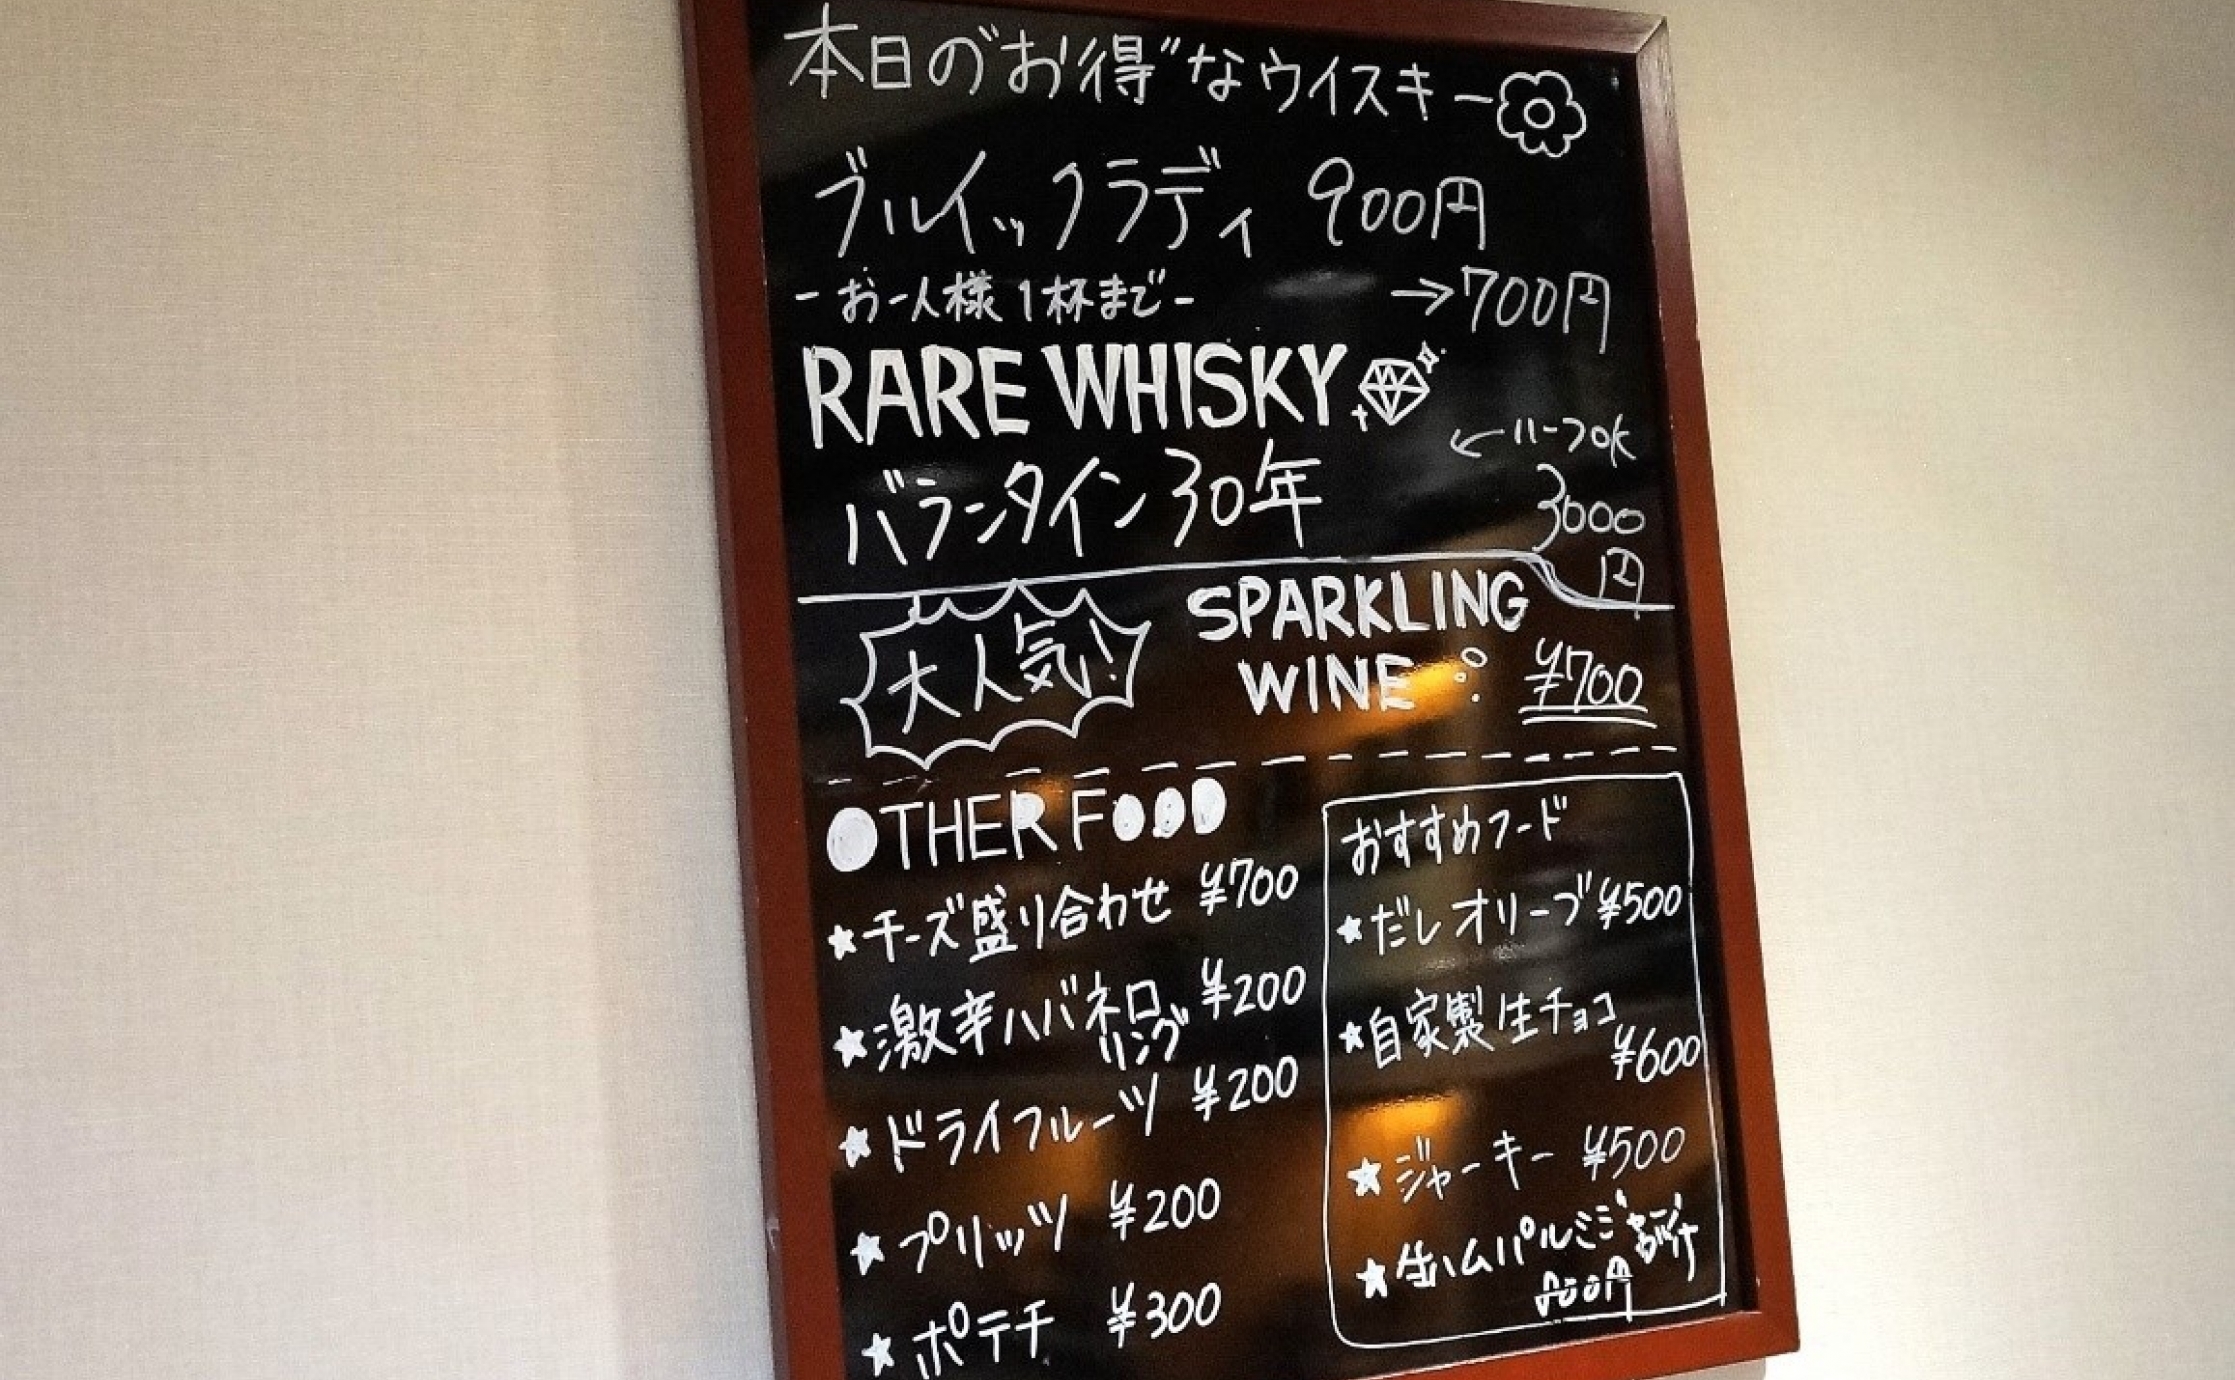 本日の"お得"なウイスキー
ブルイックラディ 900円
-お一人様1杯まで- →700円
RARE WHISKY
←ハーフOK
バランタイン30年 3000
円
大人気!
SPARKLING
WINE ¥700
OTHER FOOD
★チーズ盛り合わせ ¥700
★激辛ハバネロ ¥200
リング
★ドライフルーツ ¥200
★プリッツ ¥200
★ポテチ ¥300
おすすめフード
★だしオリーブ ¥500
★自家製生チョコ
¥600
★ジャーキー ¥500
★生ハムパルミジャーノ